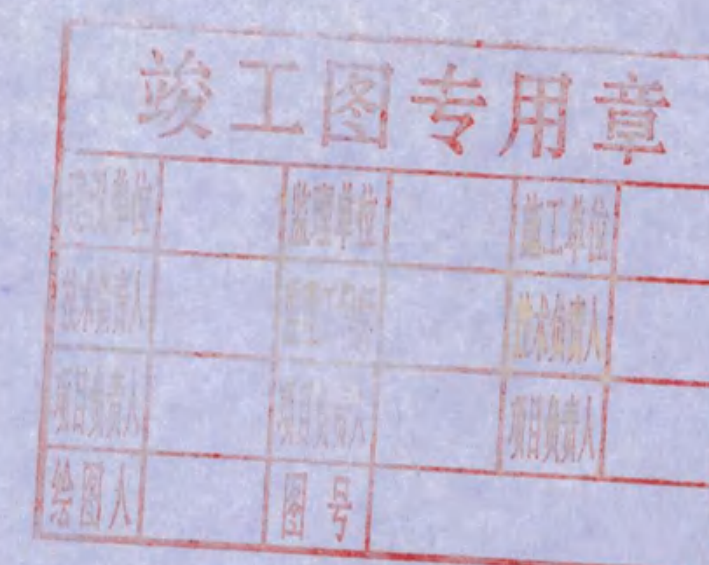 竣工图专用章
建设单位 监理单位 施工单位
技术负责人 监理工程师 技术负责人
项目负责人 项目负责人 项目负责人
绘图人 图号